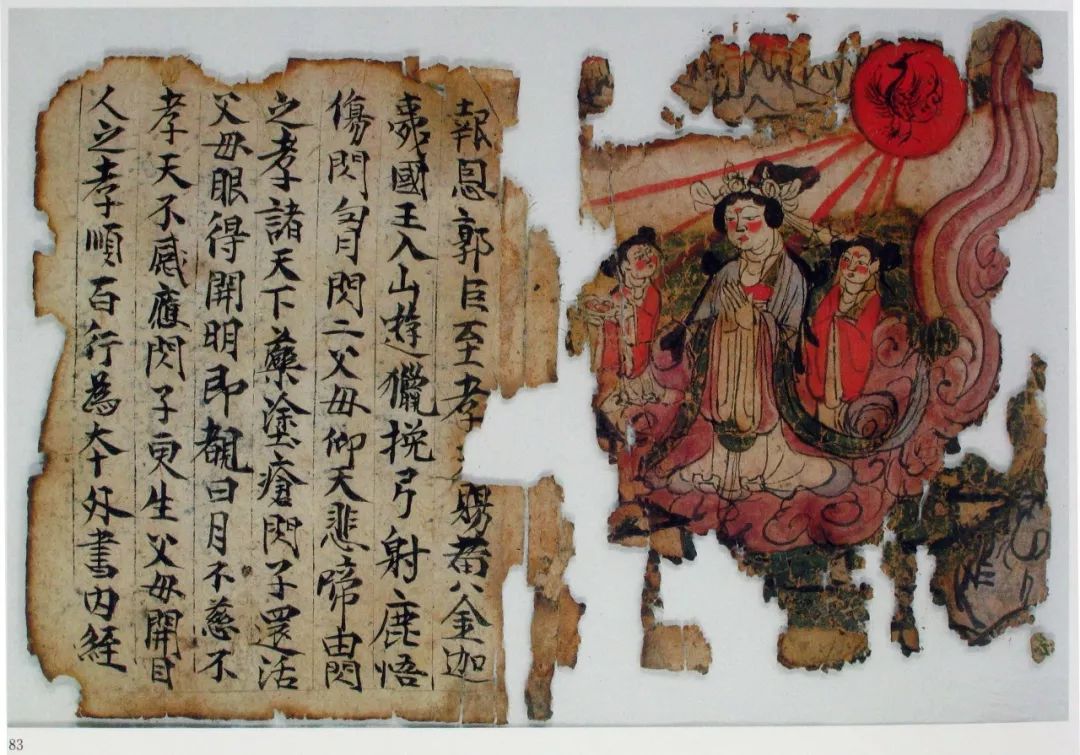 報恩郭巨至孝天賜黃金迦
夷國王入山遊獵挽弓射鹿悟
傷閃胷閃二父母仰天悲啼由閃
之孝諸天下藥塗瘡閃子還活
父母眼得開明即覩日月不慈不
孝天不感應閃子更生父母開目
人之孝順百行為夲外書内經
83